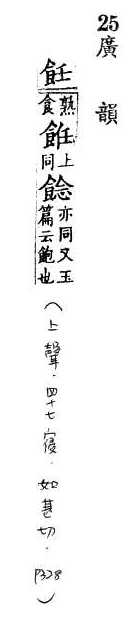 25廣韻
飪熟食䭃上同䭃亦同又玉篇云飽也(上聲.四十七寑.如甚切.P328)